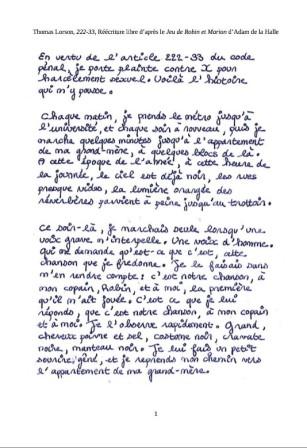 Thomas Lorson, 222-33, Réécriture libre d'après le Jeu de Robin et Marion d'Adam de la Halle
En vertu de l'article 222-33 du code
pénal, je porte plainte contre X pour
harcèlement sexuel. Voilà l'histoire
qui m'y pousse.
Chaque matin, je prends le métro jusqu'à
l'université, et chaque soir à nouveau, puis je
marche quelques minutes jusqu'à l'appartement
de ma grand-mère, à quelques blocs de là.
A cette époque de l'année, à cette heure de
la journée, le ciel est déjà noir, les rues
presque vides, la lumière orangée des
réverbères parvient à peine jusqu'au trottoir.
Ce soir-là, je marchais seule lorsqu'une
voix grave m'interpelle. Une voix d'homme.
qui me demande qu'est-ce que c'est, cette
chanson que je fredonne. Je le faisais sans
m'en rendre compte : c'est notre chanson, à
mon copain, Robin, et à moi, la première
qu'il m'ait jouée. C'est ce que je lui
réponds, que c'est notre chanson, à mon copain
et à moi. Je l'observe rapidement. Grand,
cheveux poivre et sel, costume noir, cravate
noire, manteau noir. Je lui fais un petit
sourire gêné, et je reprends mon chemin vers
l'appartement de ma grand-mère.
1